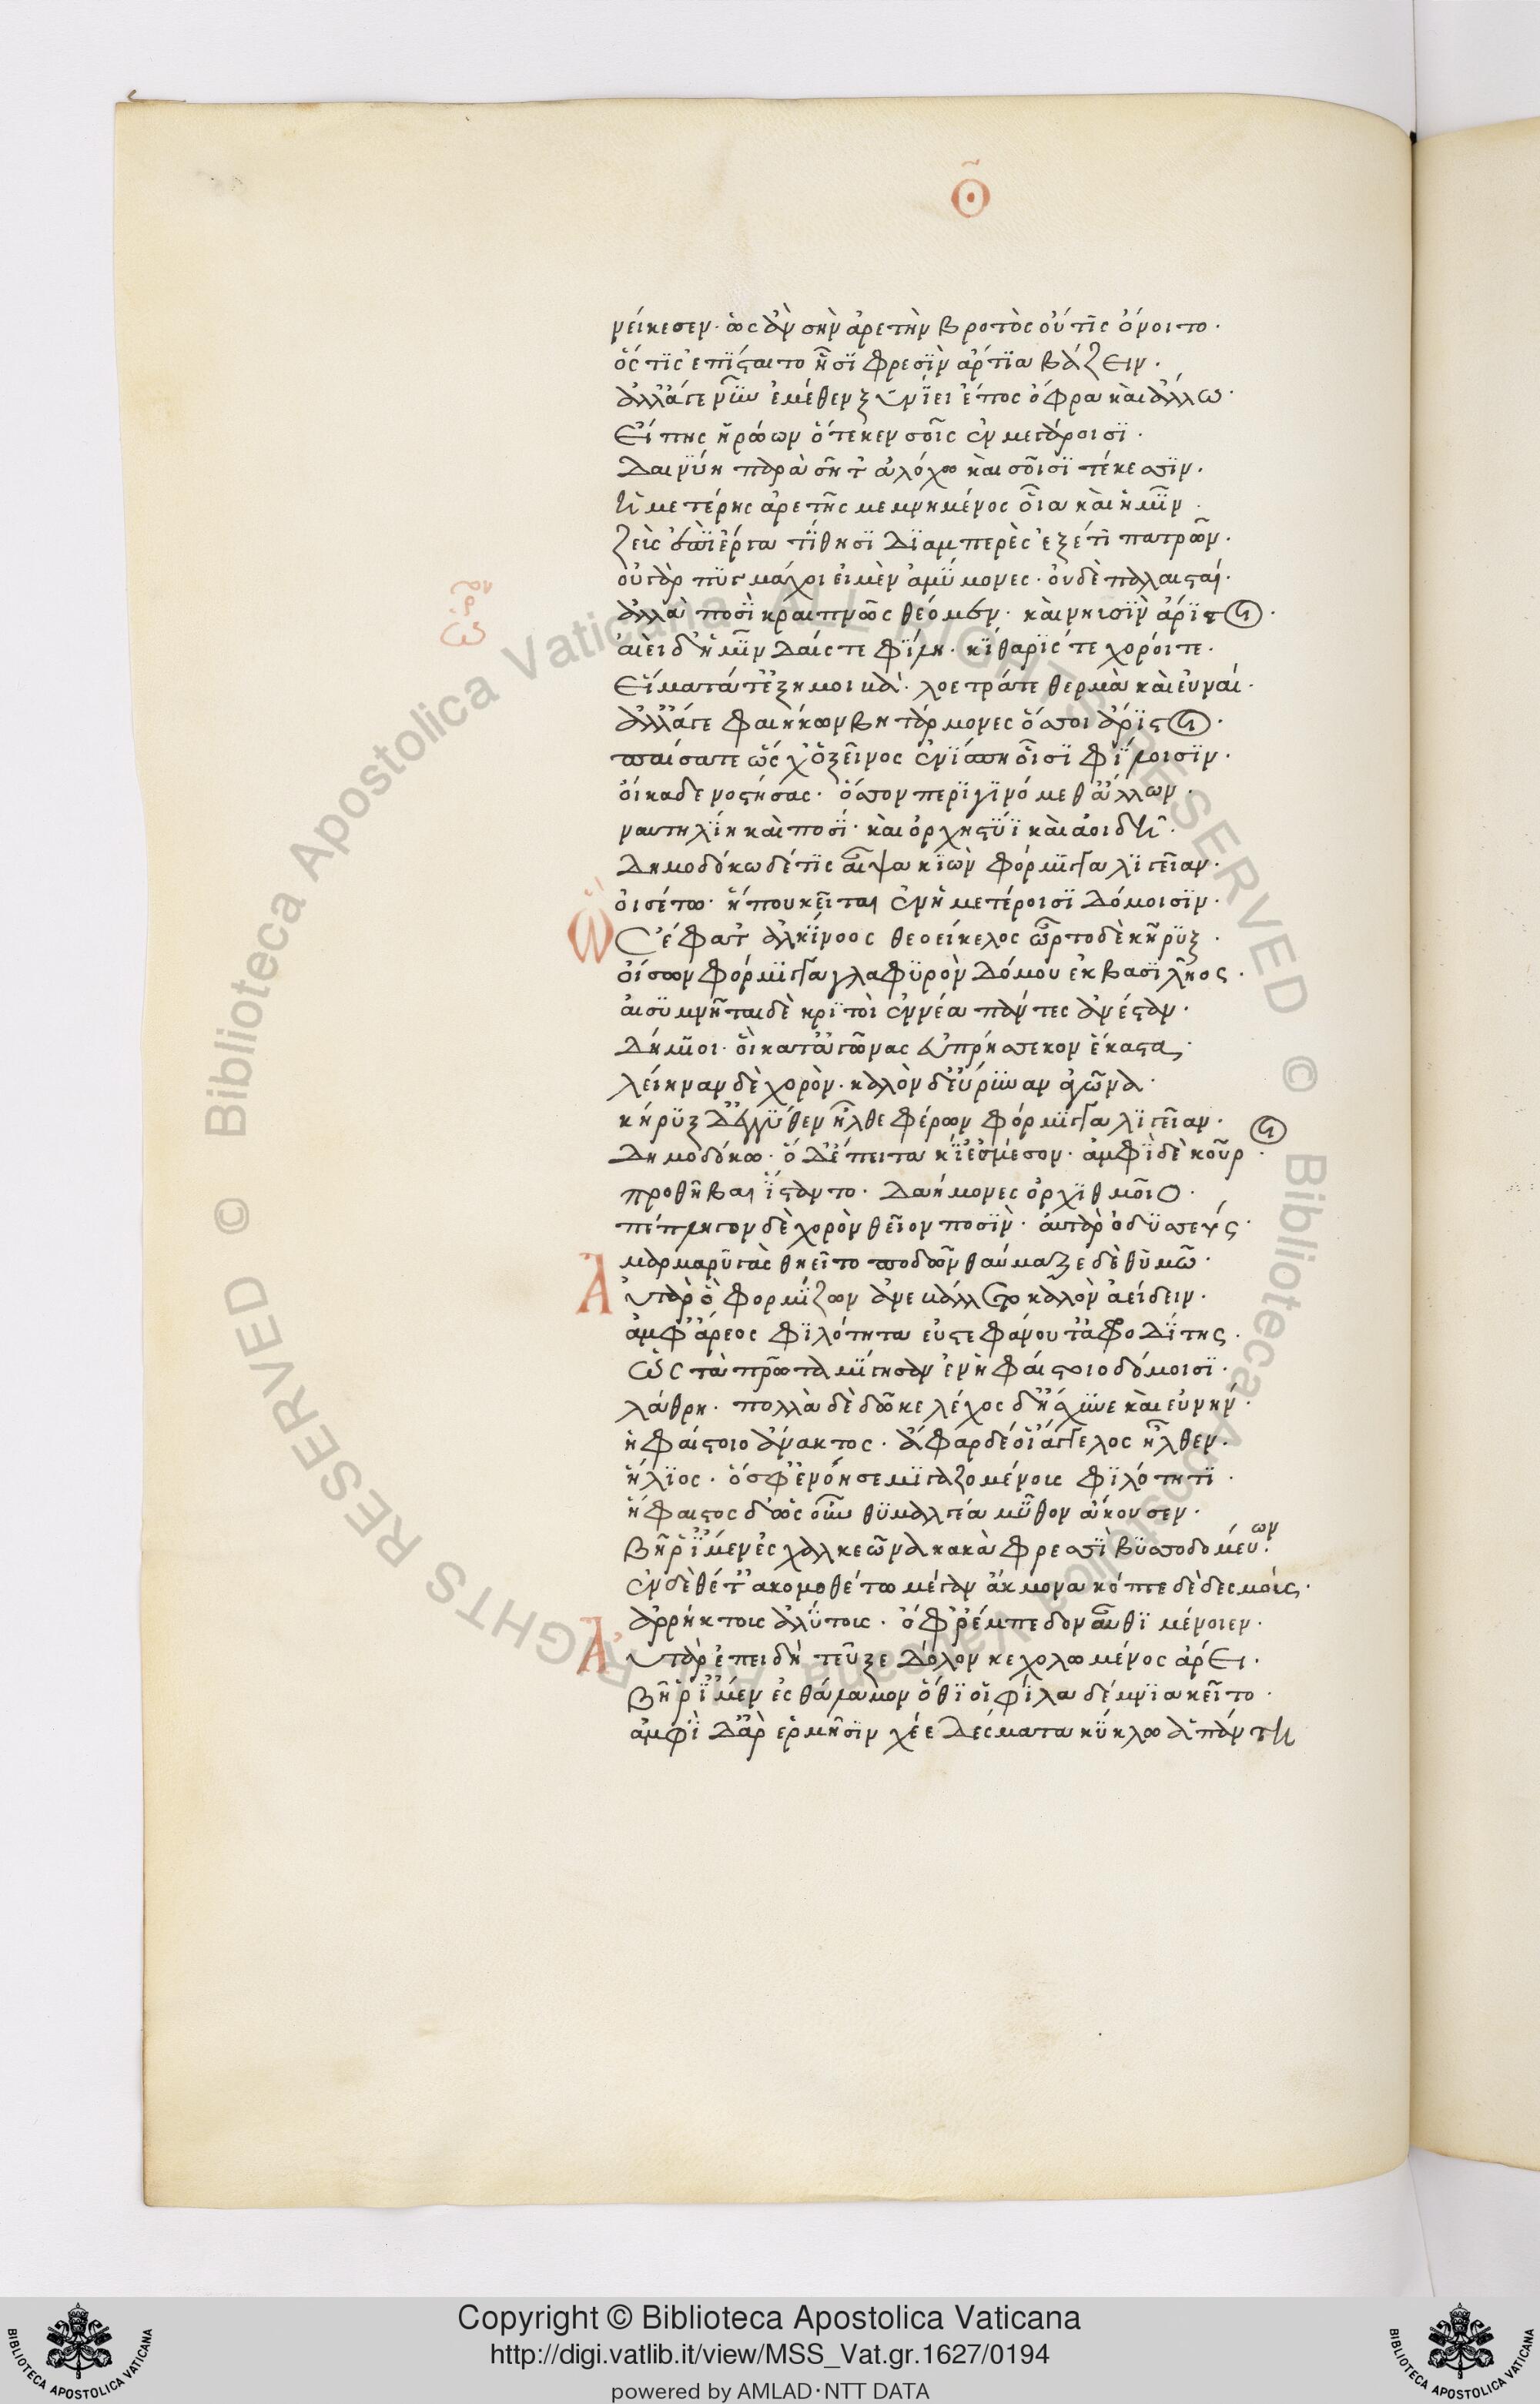 Θ
νείκεσεν· ὡς ἂν σὴν ἀρετὴν βροτὸς οὔτις ὄνοιτο·
ὅς τις ἐπίσταιτο ἧσι φρεσὶν ἄρτια βάζειν·
ἀλλἄγε νῦν ἐμέθεν ξυνίει ἔπος ὄφρα καὶ ἄλλω·
Εἴπης ἡρώων ὅτέ κεν σοῖς ἐν μεγάροισι·
Δαινύη παρὰ σῆ τ' ἀλόχω καὶ σοῖσι τέκεσσιν·
ἡμετέρης ἀρετῆς μεμνημένος οἷα καὶ ἡμῖν
ζεὺς ἐπὶ ἔργα τίθησι διαμπερὲς ἐξέτι πατρῶν·
οὐ γὰρ πυγμάχοι εἰμὲν ἀμύμονες· οὐδὲ παλαισταί·
ἀλλὰ ποσὶ κραιπνῶς θέομεν· καὶ νηυσὶν ἄριστοι·
αἰεὶ δ' ἡμῖν δαίς τε φίλη· κίθαρίς τε χοροί τε·
Εἵματά τ' ἐξημοιβά· λοετρά τε θερμὰ καὶ εὐναί·
ἀλλἄγε φαιήκων βητάρμονες ὅσσοι ἄριστοι·
παίσατε ὥς χ' ὁ ξεῖνος ἐνίσπη οἷσι φίλοισιν·
οἴκαδε νοστήσας· ὅσσον περιγινόμεθ' ἄλλων·
ναυτιλίη καὶ ποσί· καὶ ὀρχηστύϊ καὶ ἀοιδῆ·
Δημοδόκω δέ τις αἶψα κιὼν φόρμιγγα λίγειαν·
οἰσέτω· ἥ που κεῖται ἐν ἡμετέροισι δόμοισιν·
Ὣς ἔφατ' ἀλκίνοος θεοείκελος ὦρτο δὲ κῆρυξ·
οἴσων φόρμιγγα γλαφυρὸν δόμου ἐκ βασιλῆος·
αἰσυμνῆται δὲ κριτοὶ ἐννέα πάντες ἀνέσταν·
Δήμιοι· οἳ κατ' ἀγῶνας ἐϋπρήσσεκον ἕκαστα·
λείηναν δὲ χορὸν· καλὸν δ' εὔρυναν ἀγῶνα·
κήρυξ δ' ἐγγύθεν ἦλθε φέρων φόρμιγγα λίγειαν·
Δημοδόκω· ὁ δ' ἔπειτα κί' ἐς μέσον· ἀμφὶ δὲ κοῦροι·
πρωθῆβαι ἵσταντο· δαήμονες ὀρχιθμοῖο·
πέπληγον δὲ χορὸν θεῖον ποσὶν· αὐτὰρ ὀδυσσεύς·
μαρμαρυγὰς θηεῖτο ποδῶν θαύμαζε δὲ θυμῶ·
Αὐτὰρ ὁ φορμίζων ἀνεβάλλετο καλὸν ἀείδειν·
ἀμφ' ἄρεος φιλότητα εὐστεφάνου τ' ἀφροδίτης·
Ὡς τὰ πρῶτα μίγησαν ἐν ἡφαίστοιο δόμοισι·
λάθρη· πολλὰ δὲ δῶκε λέχος δ' ἤσχυνε καὶ εὐνήν·
ἡφαίστοιο ἄνακτος· ἄφαρ δέ οἱ ἄγγελος ἦλθεν·
ἥλιος· ὅ σφ' ἐνόησε μιγαζομένους φιλότητι·
ἥφαιστος δ' ὡς οὖν θυμαλγέα μῦθον ἄκουσεν·
βῆ ῥ' ἴμεν ἐς χαλκεῶνα κακὰ φρεσὶ βυσσοδομεύων·
ἐν δ' ἔθετ' ἀκμοθέτω μέγαν ἄκμονα κόπτε δὲ δεσμούς·
ἀρρήκτους ἀλύτους· ὄφρ' ἔμπεδον αὖθι μένοιεν·
Αὐτὰρ ἐπειδὴ τεῦξε δόλον κεχολωμένος ἄρει·
βῆ ῥ' ἴμεν ἐς θάλαμον ὅθι οἱ φίλα δέμνια κεῖτο·
ἀμφὶ δ' ἄρ ἑρμῆσιν χέε δέσματα κύκλω ἁπάντη
Copyright © Biblioteca Apostolica Vaticana
http://digi.vatlib.it/view/MSS_Vat.gr.1627/0194
powered by AMLAD·NTT DATA
BIBLIOTECA APOSTOLICA VATICANA
BIBLIOTECA APOSTOLICA VATICANA
© Biblioteca Apostolica Vaticana ALL RIGHTS RESERVED
© Biblioteca Apostolica Vaticana ALL RIGHTS RESERVED